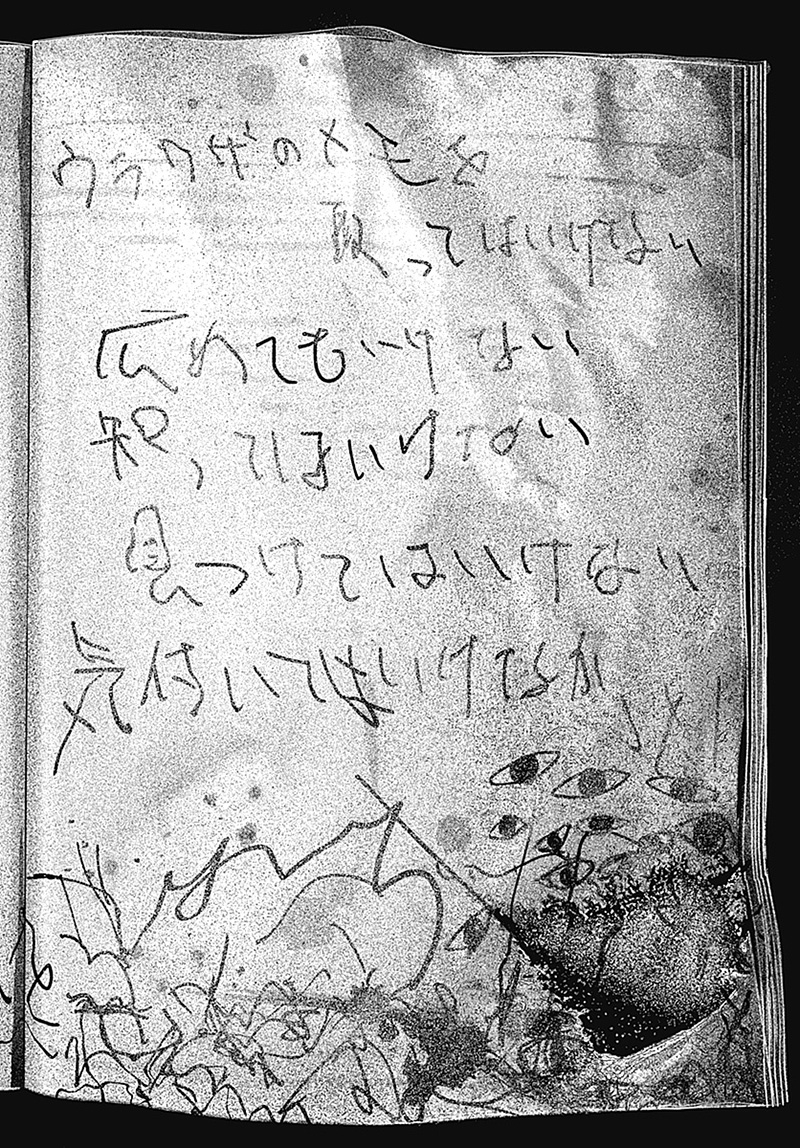 ウラワザのメモを
取ってはいけない
広めてもいけない
知ってはいけない
見つけてはいけない
気付いてはいけなか